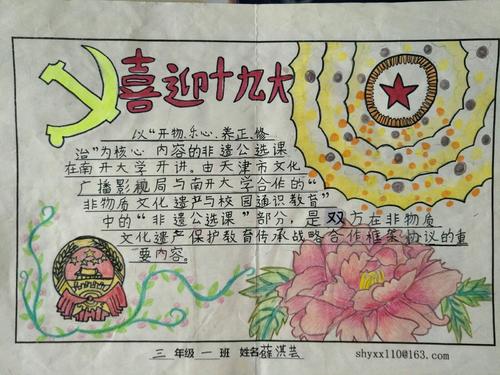 喜迎十九大
以“开物、乐心、养正、修
治”为核心 内容的非遗公选课
在南开大学开讲。由天津市文化
广播影视局与南开大学合作的“
非物质文化遗产与校园通识教育”
中的“非遗公选课”部分，是双方在非物质
文化遗产保护教育传承战略合作框架协议的重
要内容。
三 年级 一 班 姓名 薛淇芸
shyxx110@163.com